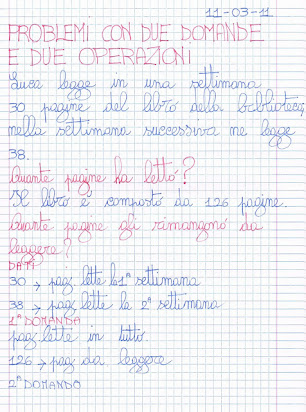 11-03-11
PROBLEMI CON DUE DOMANDE
E DUE OPERAZIONI
Luca legge in una settimana
30 pagine del libro della biblioteca,
nella settimana successiva ne legge
38.
Quante pagine ha letto?
Il libro è composto da 126 pagine.
Quante pagine gli rimangono da
leggere?
DATI
30 → pag lette la 1ª settimana
38 → pag lette la 2ª settimana
1ª DOMANDA
pag lette in tutto.
126 → pag da leggere
2ª DOMANDO